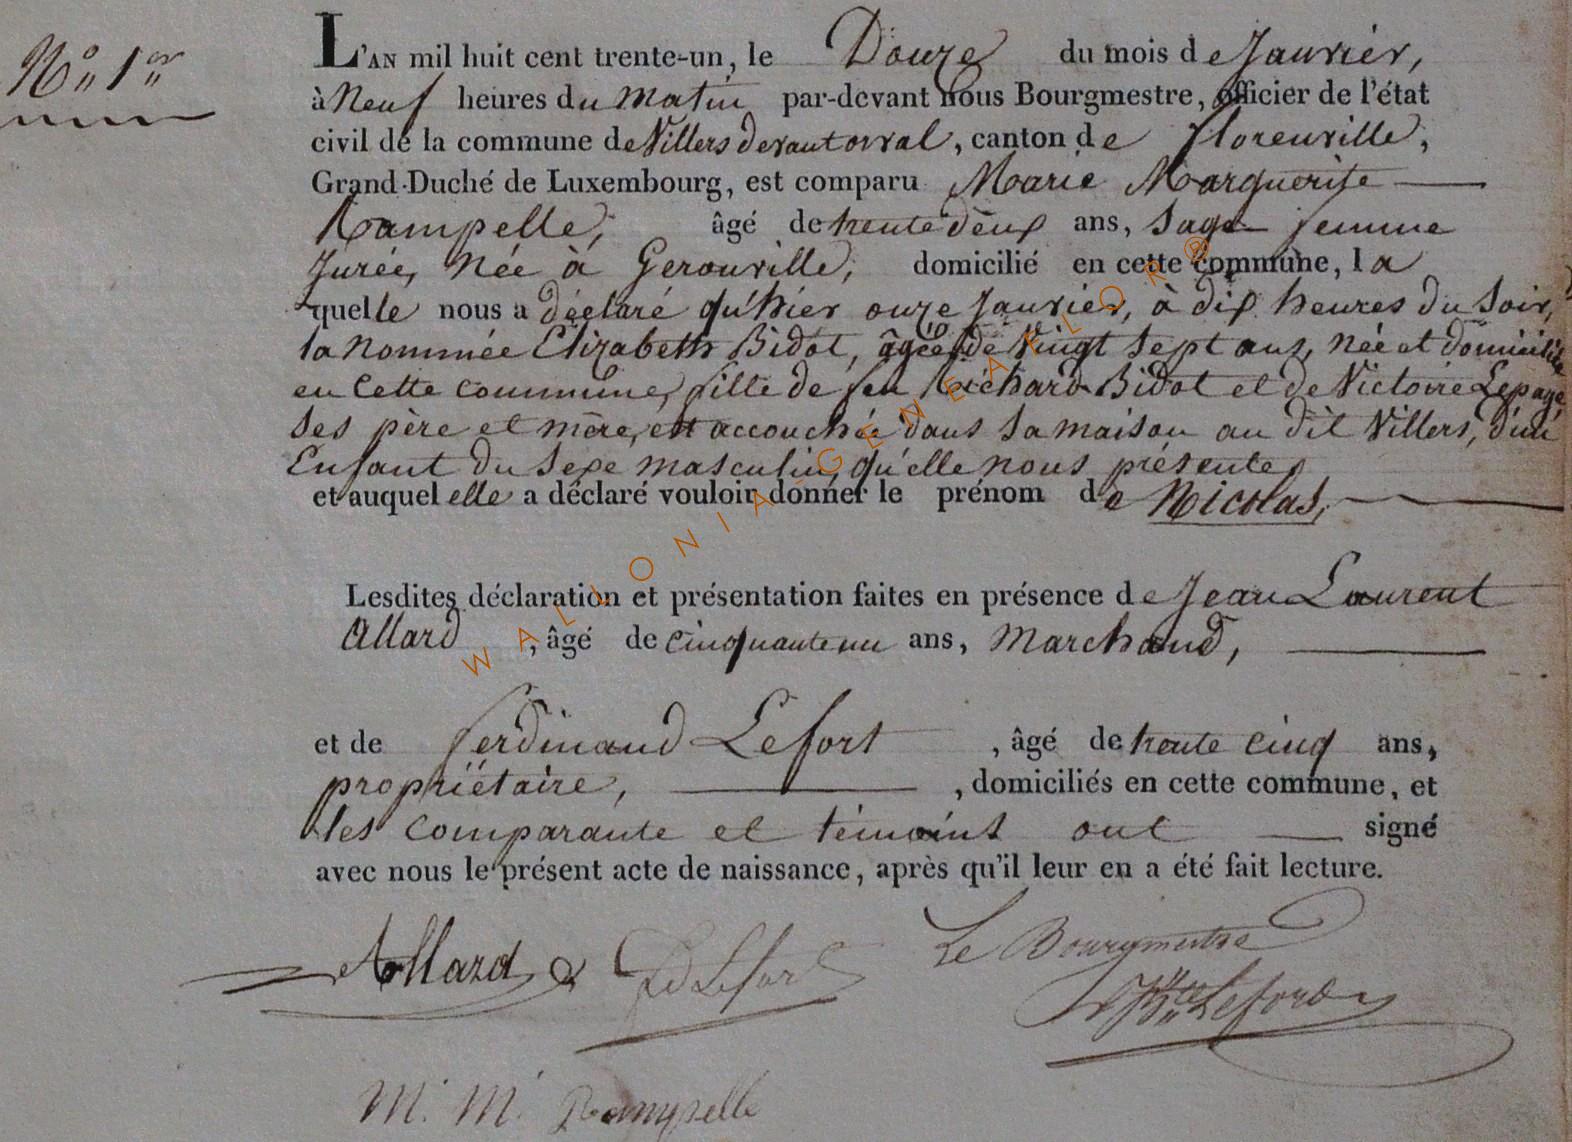 N° 1er
L'AN mil huit cent trente-un, le Douze du mois de Janvier,
à Neuf heures du matin par-devant nous Bourgmestre, officier de l'état
civil de la commune de Villers devant orval, canton de florenville,
Grand-Duché de Luxembourg, est comparu Marie Marguerite
Rampelle, âgé de trente deux ans, Sage femme
Jurée, Née à Gerouville, domicilié en cette commune, la
quelle nous a déclaré qu'hier onze Janvier, à dix heures du Soir,
la nommée Elizabeth Bidot, âgée de Vingt Sept ans, née et domiciliée
en Cette commune, fille de feu Richard Bidot et de Victoire Lepage,
Ses père et mère, est accouchée dans Sa maison au dit Villers, d'un
Enfant du Sexe masculin, qu'elle nous présente,
et auquel elle a déclaré vouloir donner le prénom de Nicolas,
Lesdites déclaration et présentation faites en présence de Jean Laurent
Allard, âgé de cinquante un ans, Marchand,
et de ferdinand Lefort, âgé de trente cinq ans,
propriétaire, domiciliés en cette commune, et
les comparante et témoins ont signé
avec nous le présent acte de naissance, après qu'il leur en a été fait lecture.
Allard fd Lefort Le Bourgmestre
Lefort
M. M. Rampelle
WALLONIA GENEALOR®